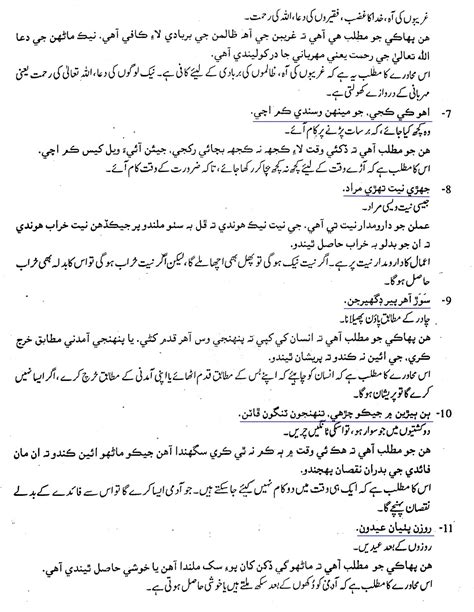 غریبوں کی آہ، خدا کا غضب، فقیروں کی دعا، اللہ کی رحمت۔
هن پهاڪي جو مطلب هي آهي ته غريبن جي آهه ظالمن جي بربادي لاءِ ڪافي آهي. نيڪ ماڻهن جي دعا
الله تعاليٰ جي رحمت يعني مهرباني جا در کوليندي آهي.
اس محاورے کا مطلب یہ ہے کہ غریبوں کی آہ، ظالموں کی بربادی کے لیئے کافی ہے۔ نیک لوگوں کی دعا، اللہ تعالیٰ کی رحمت یعنی
مہربانی کے دروازے کھولتی ہے۔
7- اهو ڪي ڪجي، جو مينهن وسندي ڪم اچي.
وہ کچھ کیا جائے، کہ برسات پڑنے پر کام آئے۔
هن جو مطلب آهي ته ڏکئي وقت لاءِ ڪجهه نه ڪجهه بچائي رکجي، جيئن آئيءَ ويل ڪيس ڪم اچي.
اس کا مطلب ہے کہ آڑے وقت کے لیئے کچھ نہ کچھ بچا کر رکھا جائے، تاکہ ضرورت کے وقت کام آئے۔
8- جهڙي نيت تهڙي مراد.
جیسی نیت ویسی مراد۔
عملن جو دارومدار نيت تي آهي. جي نيت نيڪ هوندي ته ڦل به سٺو ملندو پر جيڪڏهن نيت خراب هوندي
ته ان جو بدلو به خراب حاصل ٿيندو.
اعمال کا دارومدار نیت پر ہے۔ اگر نیت نیک ہوگی تو پھل بھی اچھا ملے گا، لیکن اگر نیت خراب ہوگی تو اس کا بدلہ بھی خراب
حاصل ہوگا۔
9- سوڙ آهر پير ڊگهيرجن.
چادر کے مطابق پاؤں پھیلانا۔
هن پهاڪي جو مطلب آهي ته انسان کي کپي ته پنهنجي وس آهر قدم کڻي. يا پنهنجي آمدني مطابق خرچ
ڪري. جي ائين نه ڪندو ته پريشان ٿيندو.
اس محاورے کا مطلب ہے کہ انسان کو چاہیئے کہ اپنے بس کے مطابق قدم اٹھائے یا اپنی آمدنی کے مطابق خرچ کرے، اگر ایسا نہیں
کرے گا تو پریشان ہوگا۔
10- ٻن ٻيڙين ۾ جيڪو چڙهي، تنهنجون ٽنگون ڦاٽن.
دو کشتیوں میں جو سوار ہو، تو اسکی ٹانگیں چریں۔
هن جو مطلب آهي ته هڪ ئي وقت ۾ ٻه ڪم نه ٿي ڪري سگهندا آهن جيڪو ماڻهو ائين ڪندو ته ان مان
فائدي جي بدران نقصان پهچندو.
اس کا مطلب ہے کہ ایک ہی وقت میں دو کام نہیں کیئے جا سکتے ہیں۔ جو آدمی ایسا کرے گا تو اس سے فائدے کے بدلے
نقصان پہنچے گا۔
11- روزن پٺيان عيدون.
روزوں کے بعد عیدیں۔
هن پهاڪي جو مطلب آهي ته ماڻهو کي ڏکن کان پوءِ سک ملندا آهن يا خوشي حاصل ٿيندي آهي.
اس محاورے کا مطلب ہے کہ آدمی کو دُکھوں کے بعد سکھ ملتے ہیں یا خوشی حاصل ہوتی ہے۔